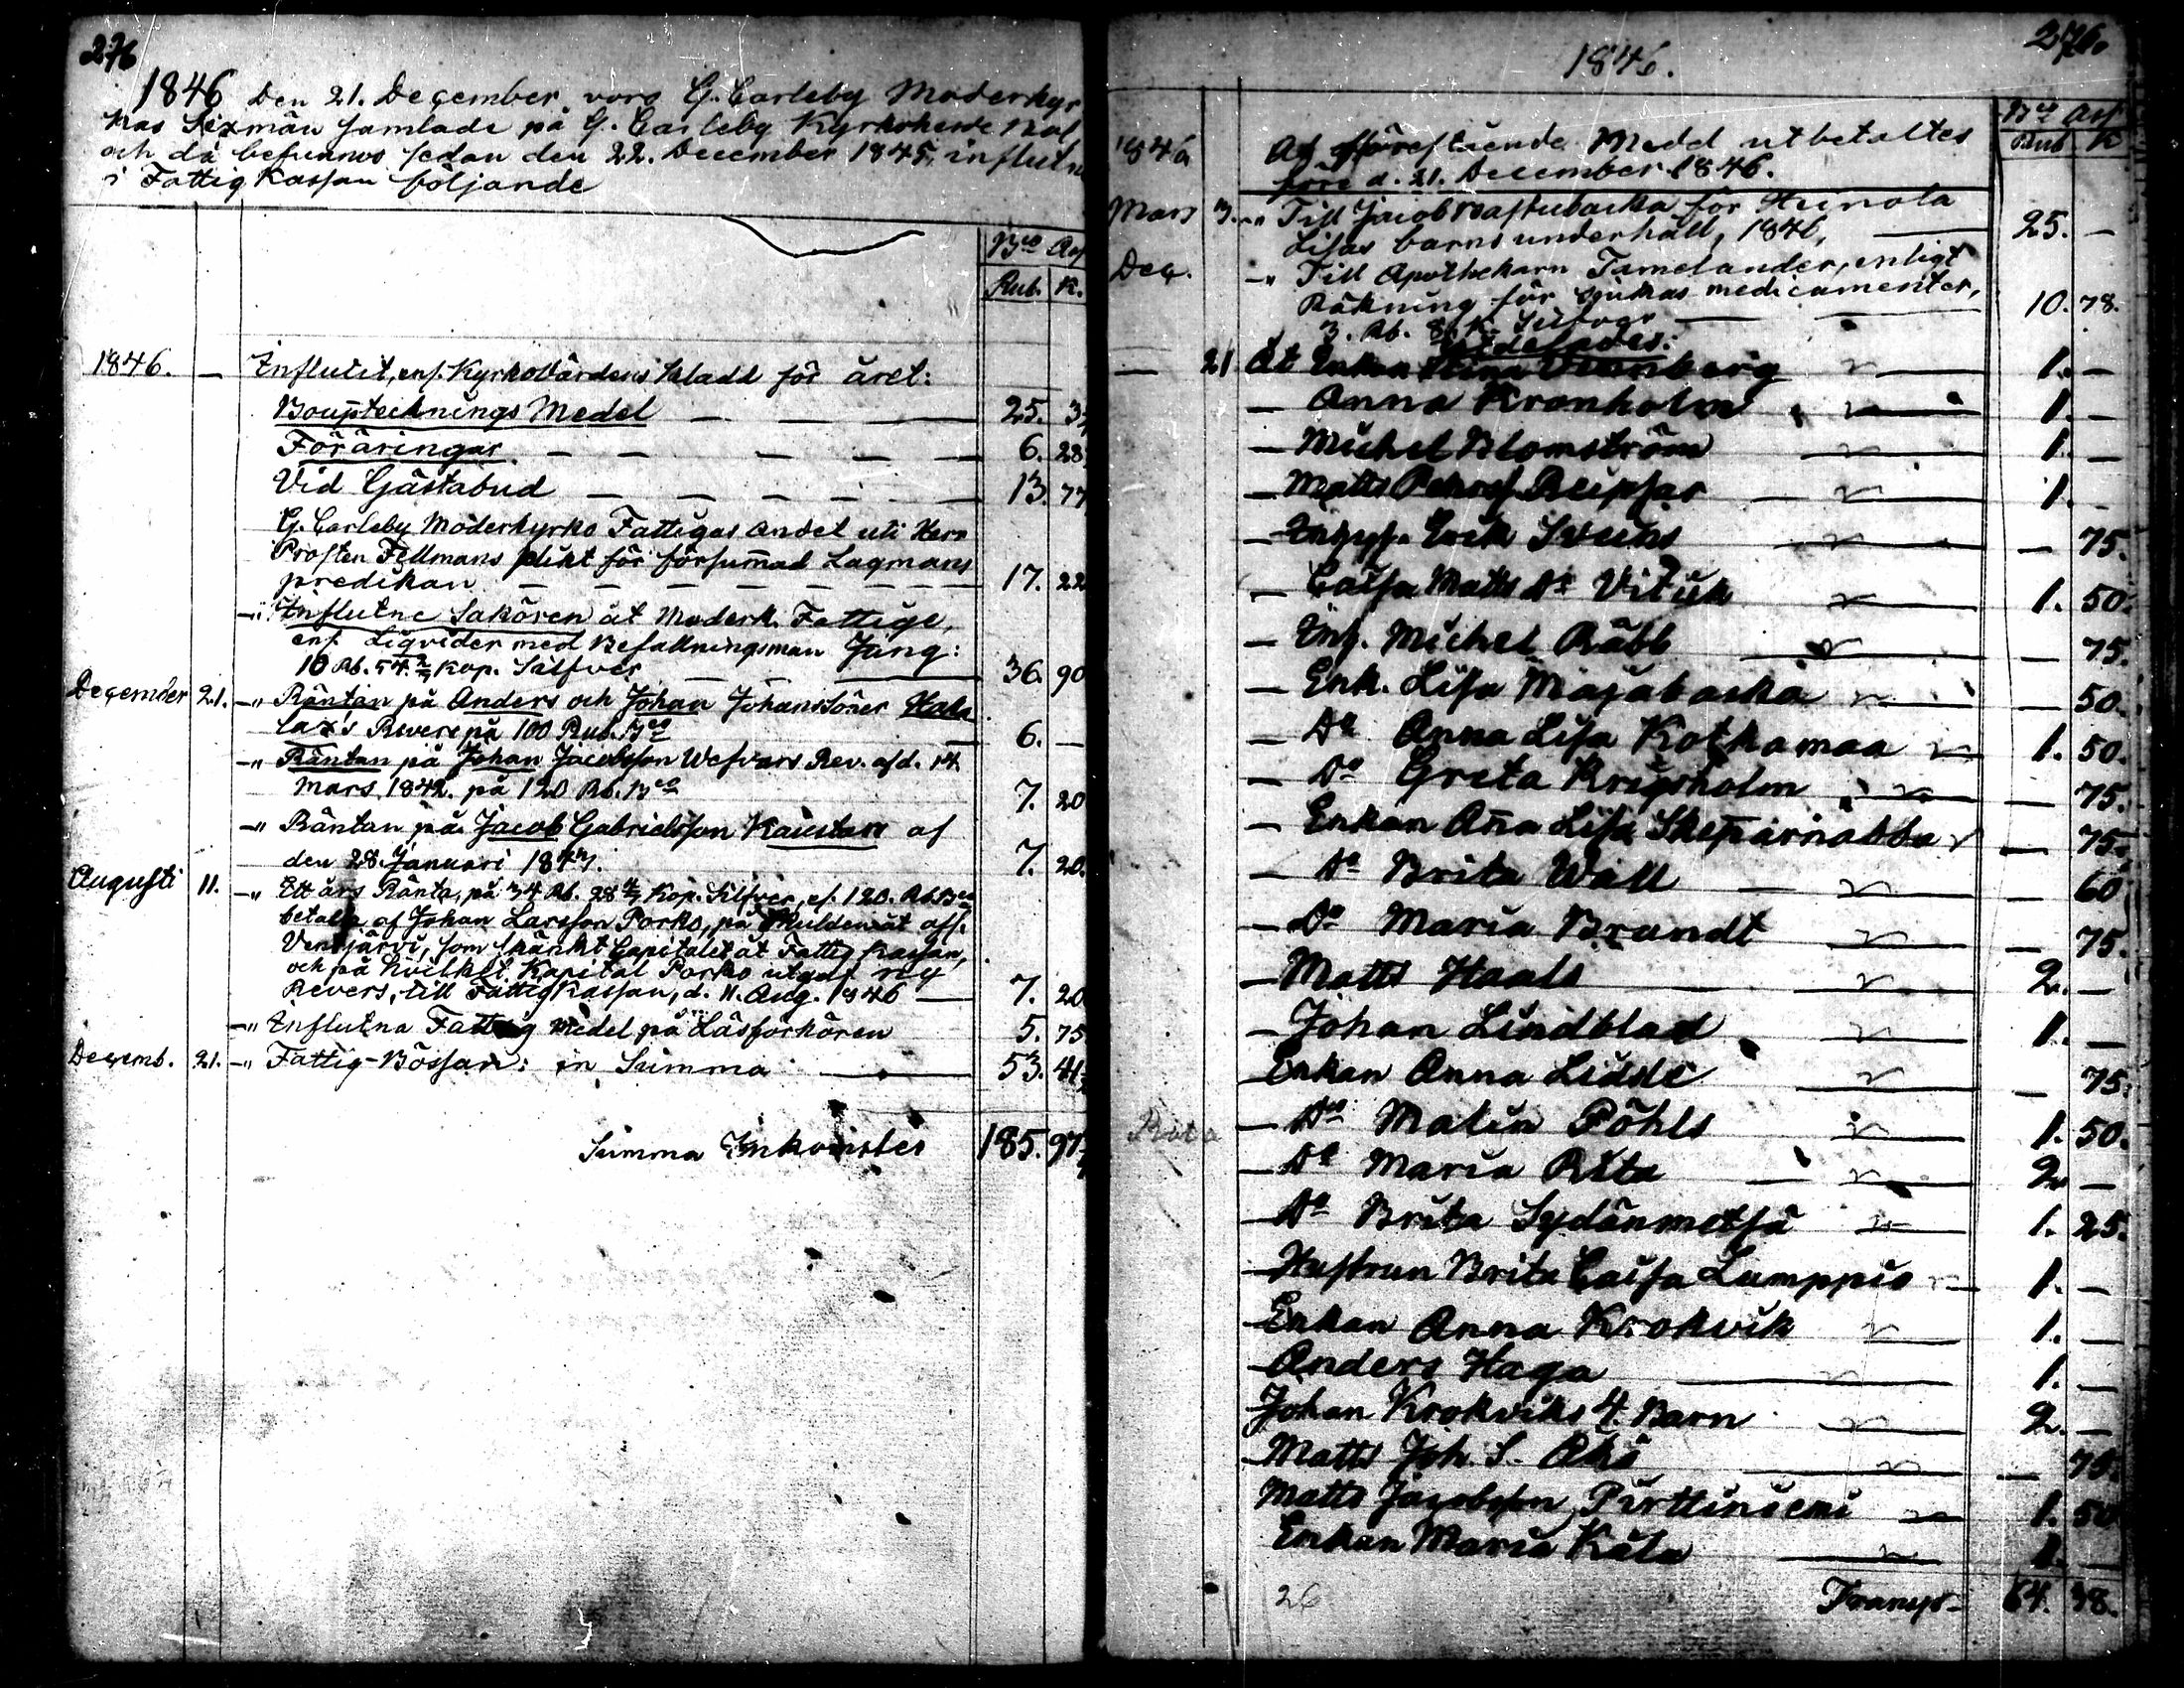 276
1846 Den 21. December voro G. Carleby Moderkyr
kas Sexmän samlade på G. Carleby Kyrkoherde
och då befunnos sedan den 22. December 1845. influtn
i Fattig Kassan följande
Bco
Rub. K.
1846. — Influtit, enl. Kyrkovärdens Kladd för året:
Boupptecknings Medel — — 25. 3
Föräringar — — — — — 6. 28
Vid Gästabud — — — — — 13. 77
G. Carleby Moderkyrko Fattigas andel uti Herr
Prosten Fellmans plikt för försummad Lagmans
predikan — — — — — 17. 22
—" Influtne Sakören åt Moderk. Fattige,
enl. Liqvider med Befallningsman Jung:
10 Rb. 54 2/7 Kop. Silfver — — 36. 90
December 21. —" Räntan på Anders och Johan Johans Söner Kala
lax's Revers på 100 Rub. Bco — 6. —
—" Räntan på Johan Jacobsson Wefvars Rev. af d. 14.
Mars 1842. på 120 Rb. Bco 7. 20
—" Räntan på Jacob Gabrielsson Kaustars af
den 28. Januari 1844. 7. 20.
Augusti 11. —" Ett års Ränta, på 34 Rb. 28 4/7 Kop. Silfver, el. 120. Rb. Bco
betald af Johan Larsson Porko, på Skulden åt afl.
Ventjärvi, som skänkt Capitalet åt Fattig Kassan,
och på hvilket Kapital Porko utgaf ny
Revers, till Fattig Kassan, d. 11. Aug. 1846 — 7. 20
—" Influtna Fattig Medel på Läsförhören 5. 75
Decemb. 21. —" Fattig-Bössan: in Summa — 53. 41
Summa Inkomster 185. 97
276.
1846.
Bco Ass
Rub K
1846 Af förestående Medel utbetaltes
före d. 21. December 1846.
Mars 3. —" Till Jacob Rastubacka för Heinola
Lisas barns underhåll, 1846, — 25. —
Dec. —" Till Apothekarn Tamelander, enligt
Räkning för sjukas medicamenter,
3. Rb. 8. K. Silfver — — 10. 78.
Utdelades:
— 21 Åt Enkan Stina Strandberg — 1. —
— Anna Kronholm — 1. —
— Michel Blomström — 1. —
— Matts Pehrss. Reipsar — 1. —
— Inhys. Erik Stuchs — — 75.
— Caisa Matts Dr Vitick — 1. 50.
— Inh. Michel Räbb — — 75.
— Enk. Lisa Majabacka — — 50.
— Do Anna Lisa Kotkamaa — 1. 50.
— Do Greta Krigsholm — — 75.
— Enkan Ana Lisa Skeparnabba — 75.
— Do Brita Wall — — 60
— Do Maria Brandt — — 75.
— Matts Haals — 2. —
— Johan Lindblad — 1. —
Enkan Anna Lidde — — 75.
Rita — Do Malin Pöhls 1. 50.
— Do Maria Rita — 2. —
— Do Brita Sydänmetsä — 1. 25.
— Hustrun Brita Caisa Lumppio — 1. —
Enkan Anna Krokvik — 1. —
Anders Haga — 1. —
Johan Krokviks 4. Barn — 2. —
Matts Joh. S. Åhs — — 75.
Matts Jacobsson Pirttiniemi — 1. 50
Enkan Maria Kåla — 1. —
26 Transp — 64. 38.